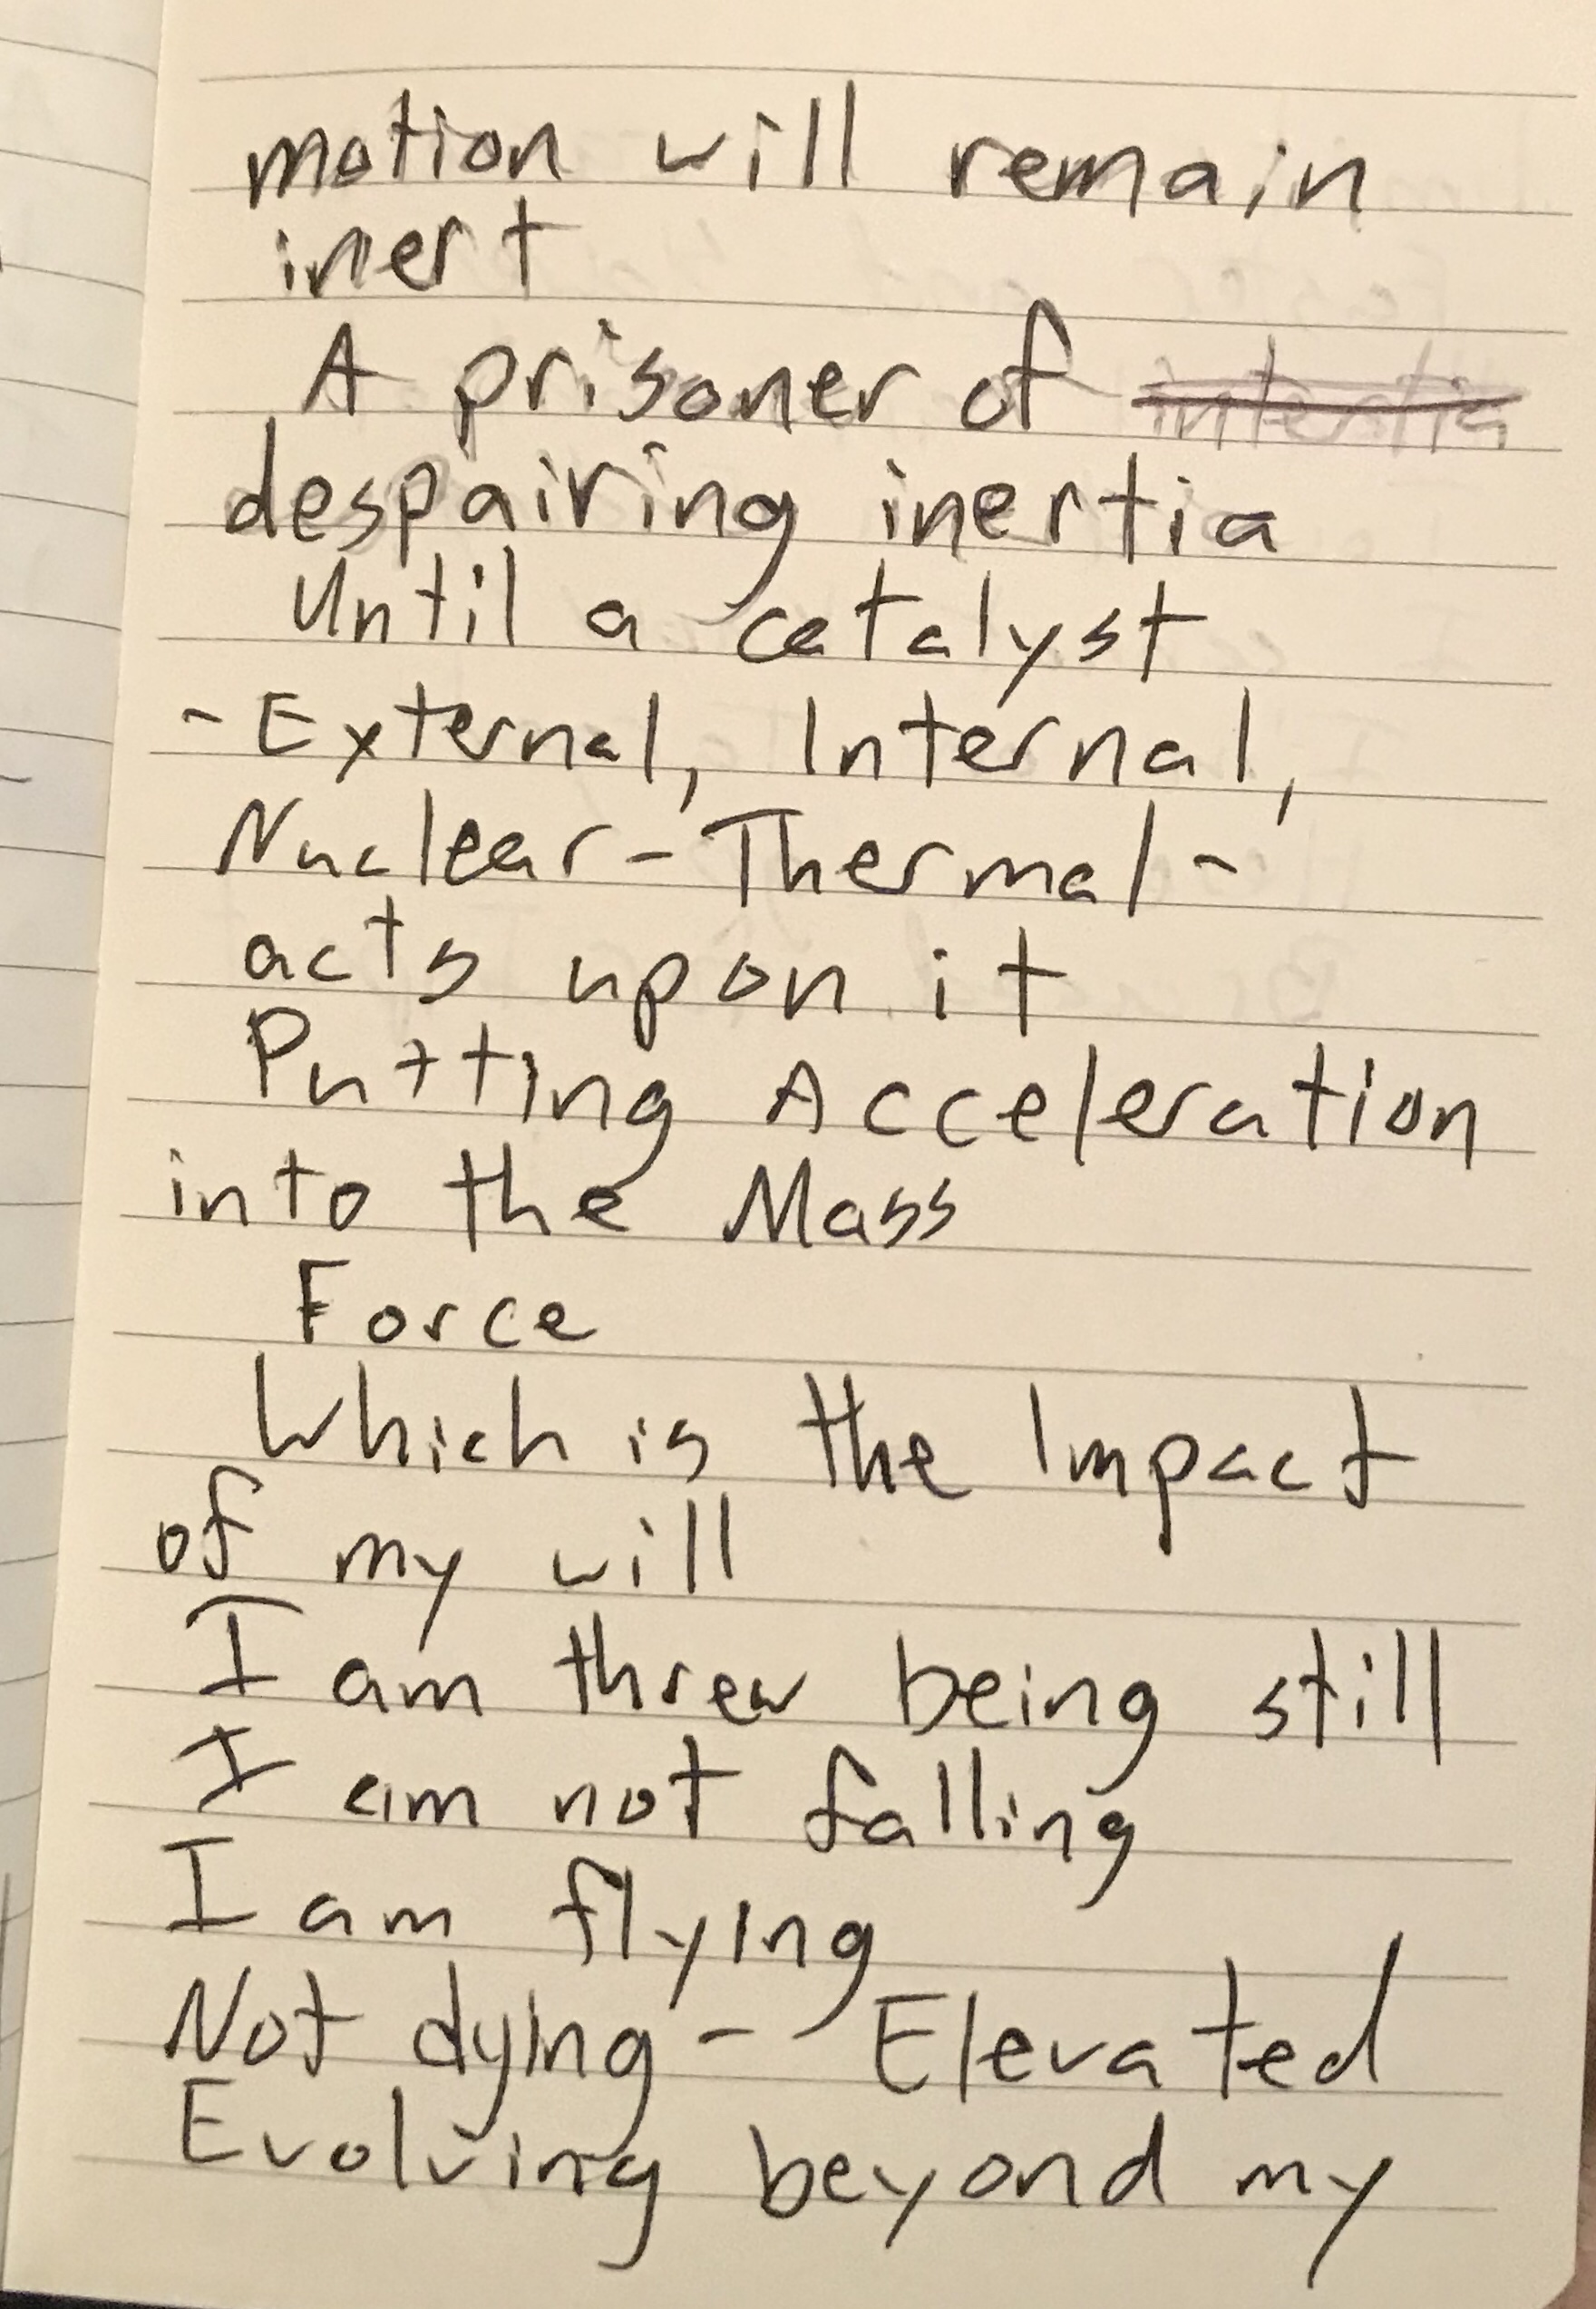 motion will remain
inert
A prisoner of
despairing inertia
Until a catalyst
- External, Internal,
Nuclear - Thermal -
acts upon it
Putting Acceleration
into the Mass
Force
Which is the Impact
of my will
I am threw being still
I am not falling
I am flying
Not dying - - Elevated
Evolving beyond my